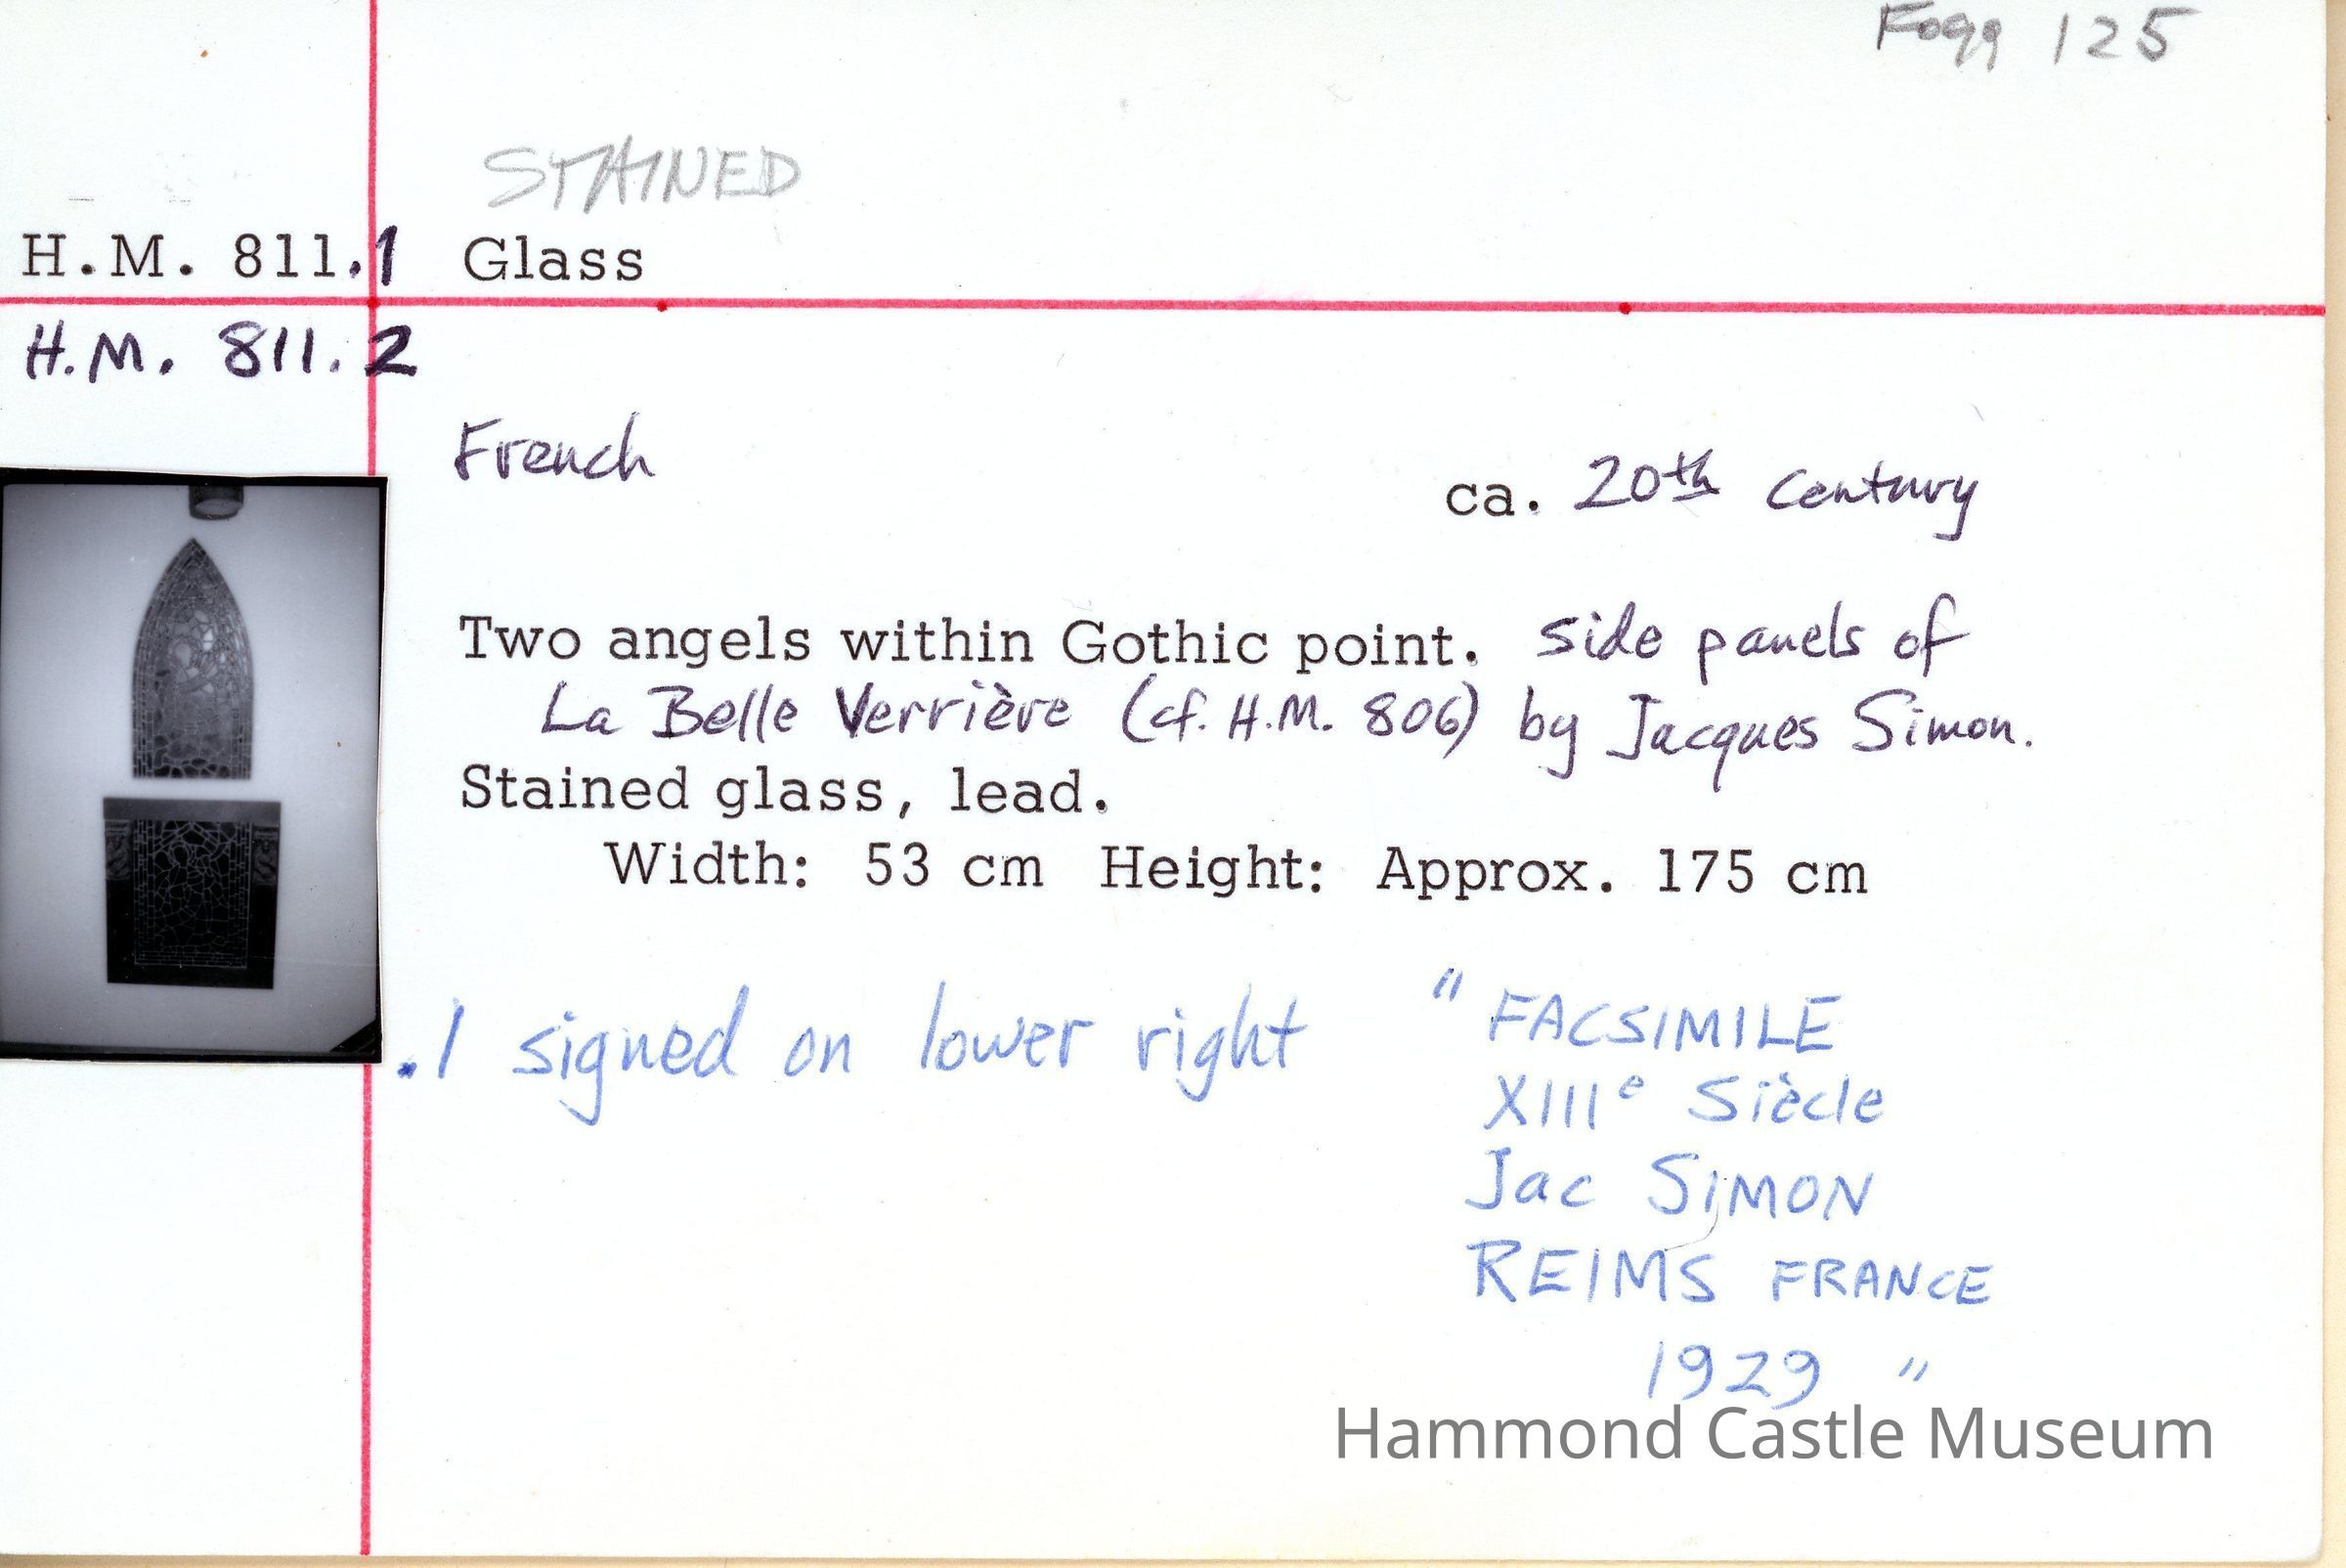 Fogg 125
STAINED
H.M. 811.1 Glass
H.M. 811.2
French
ca. 20th century
Two angels within Gothic point. side panels of
La Belle Verrière (cf. H.M. 806) by Jacques Simon.
Stained glass, lead.
Width: 53 cm Height: Approx. 175 cm
.1 signed on lower right " FACSIMILE
XIIIe Siècle
Jac SIMON
REIMS FRANCE
1929 "
Hammond Castle Museum